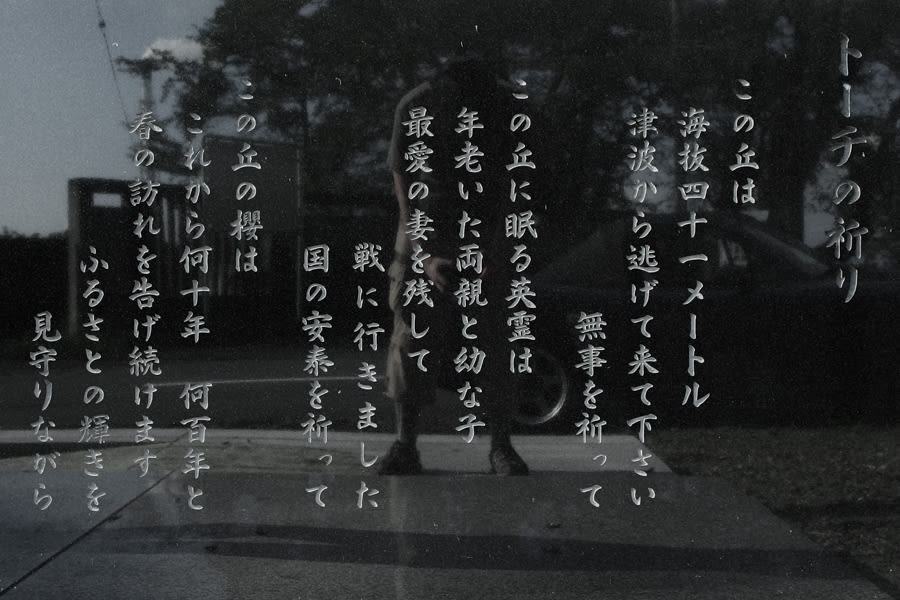 トーチの祈り
この丘は
海抜四十一メートル
津波から逃げて来て下さい
無事を祈って
この丘に眠る英霊は
年老いた両親と幼な子
最愛の妻を残して
戦に行きました
国の安泰を祈って
この丘の櫻は
これから何十年 何百年と
春の訪れを告げ続けます
ふるさとの輝きを
見守りながら